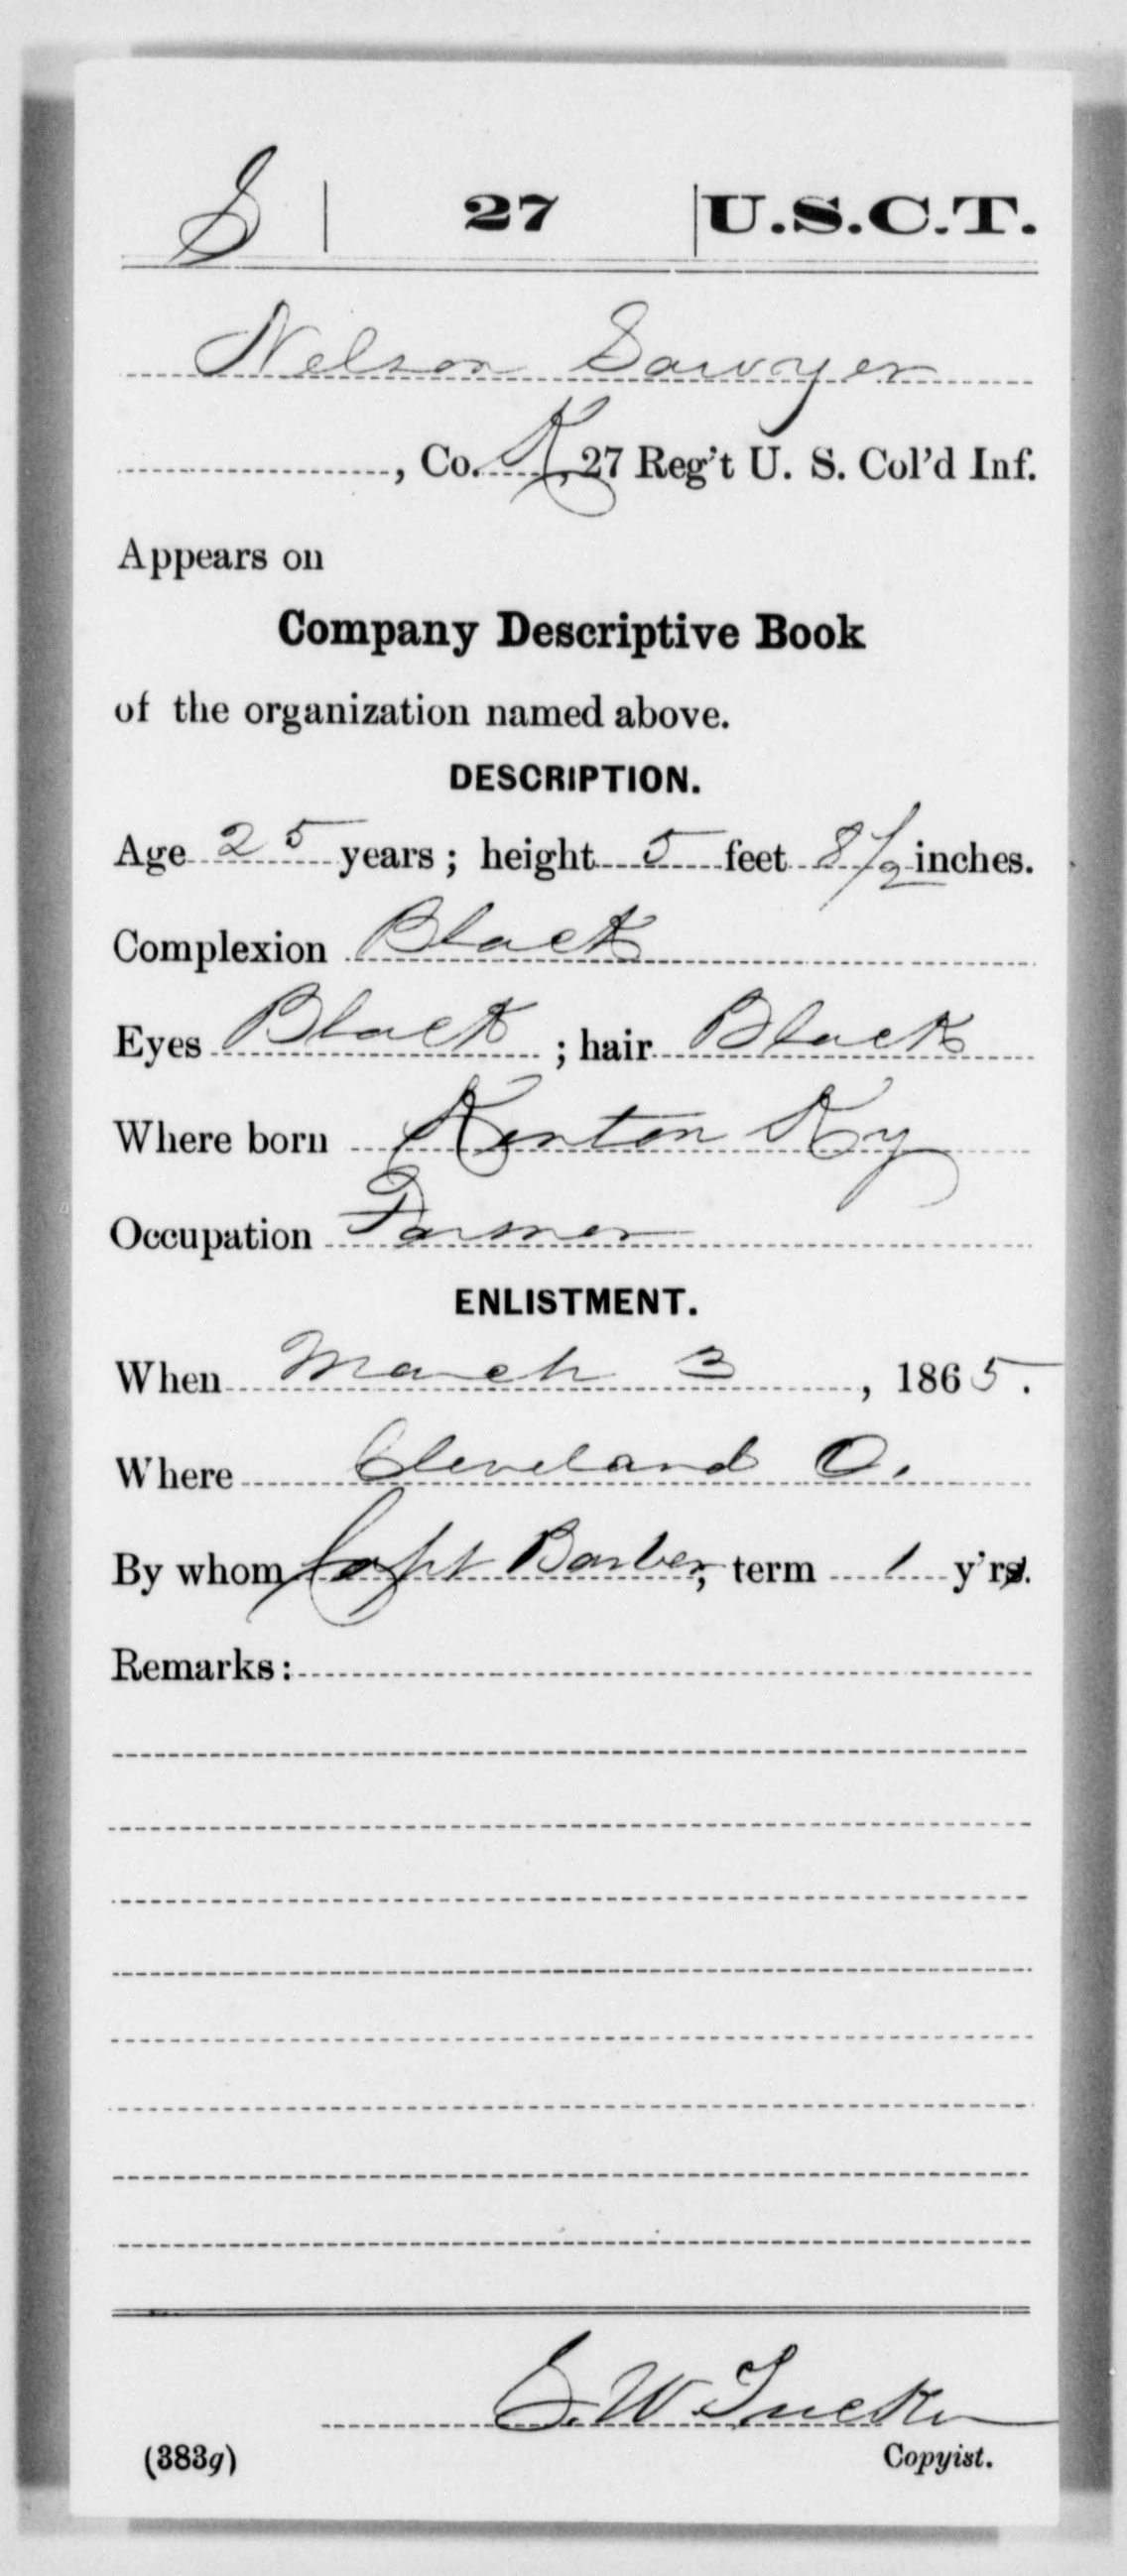 S | 27 | U.S.C.T.
Nelson Sawyer
, Co. K, 27 Reg't U. S. Col'd Inf.
Appears on
Company Descriptive Book
of the organization named above.
DESCRIPTION.
Age 25 years; height 5 feet 8 1/2 inches.
Complexion Black
Eyes Black; hair Black
Where born Kenton Ky
Occupation Farmer
ENLISTMENT.
When March 3, 1865.
Where Cleveland O.
By whom Capt Barber, term 1 y'rs.
Remarks:
W Tucker
(383g) Copyist.